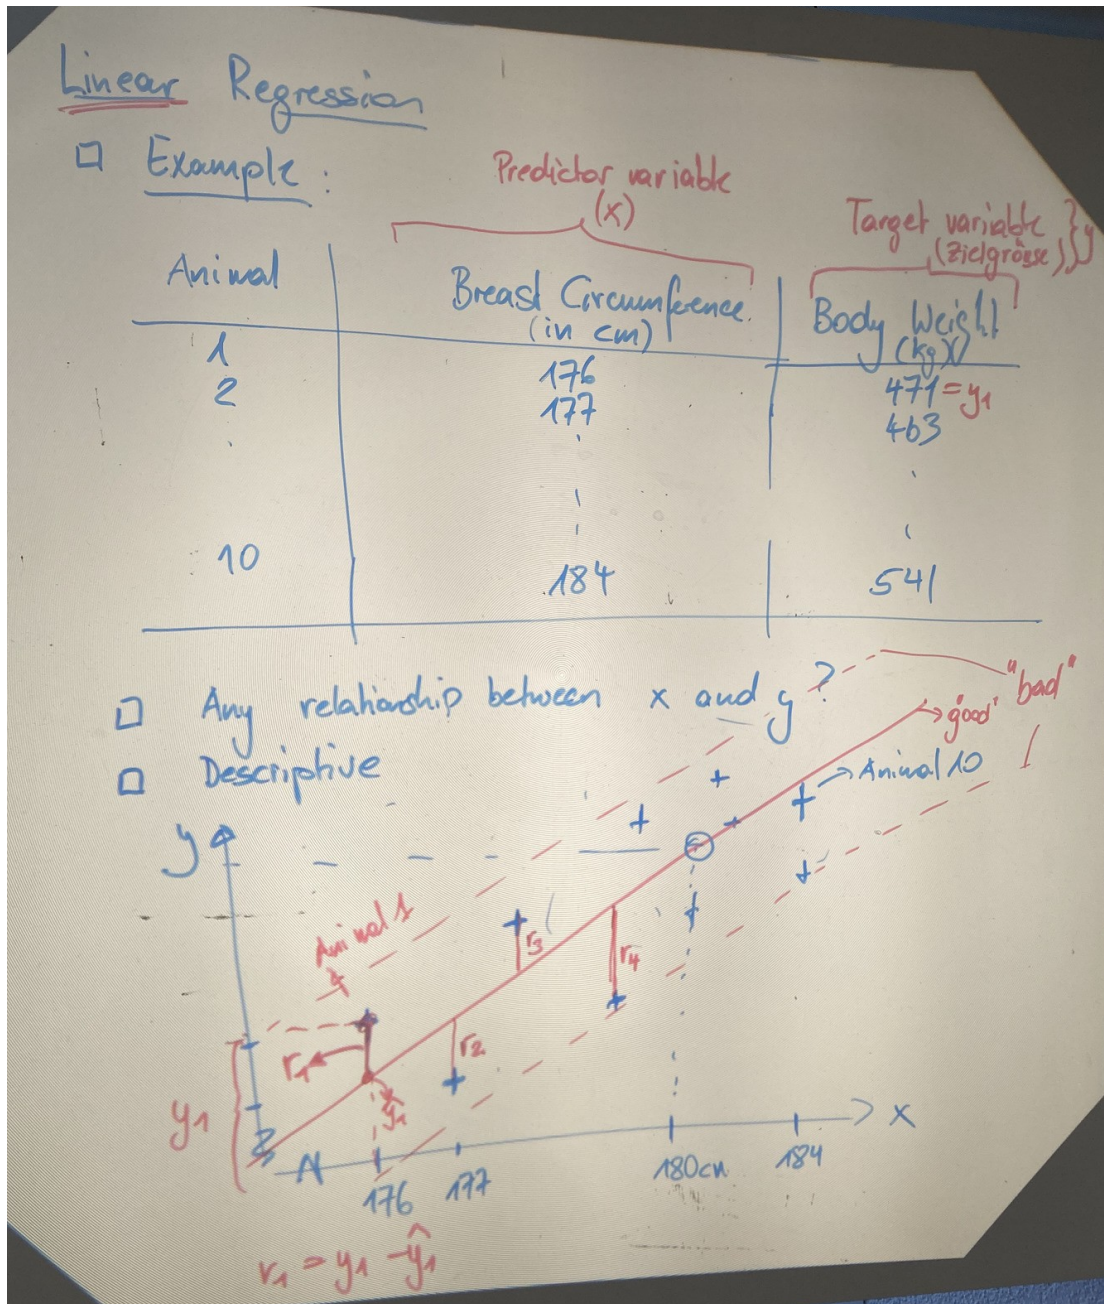 Linear Regression
□ Example :
Predictor variable
(x)
Target variable
(Zielgrösse) } y
Animal
Breast Circumference
(in cm)
Body Weight
(kg)
1 176 471 = y₁
2 177 463
10 184 541
□ Any relationship between x and y ?
□ Descriptive
"bad"
"good"
Animal 10
y
Animal 1
r₃
r₄
r₁
r₂
ŷ₁
y₁
x
176 177 180cm 184
r₁ = y₁ - ŷ₁